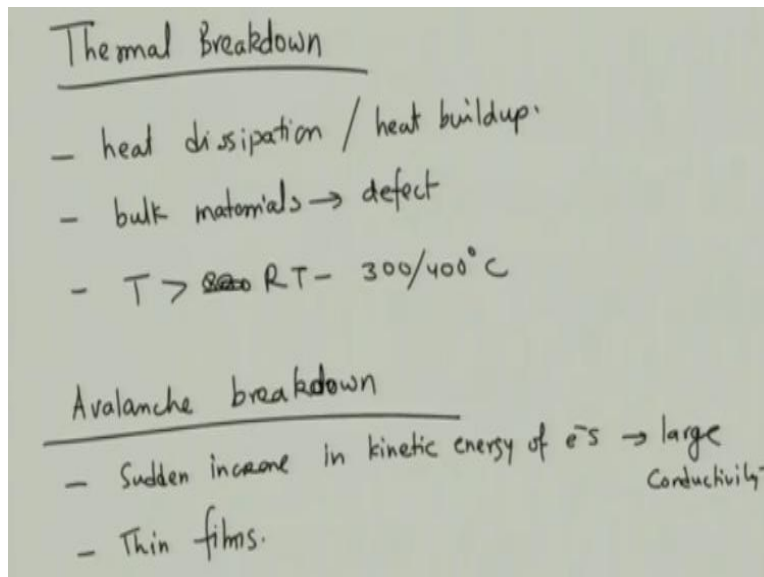 Thermal Breakdown
- heat dissipation / heat buildup.
- bulk materials → defect
- T > RT - 300/400°C
Avalanche breakdown
- Sudden increase in kinetic energy of e⁻s → large
Conductivity
- Thin films.